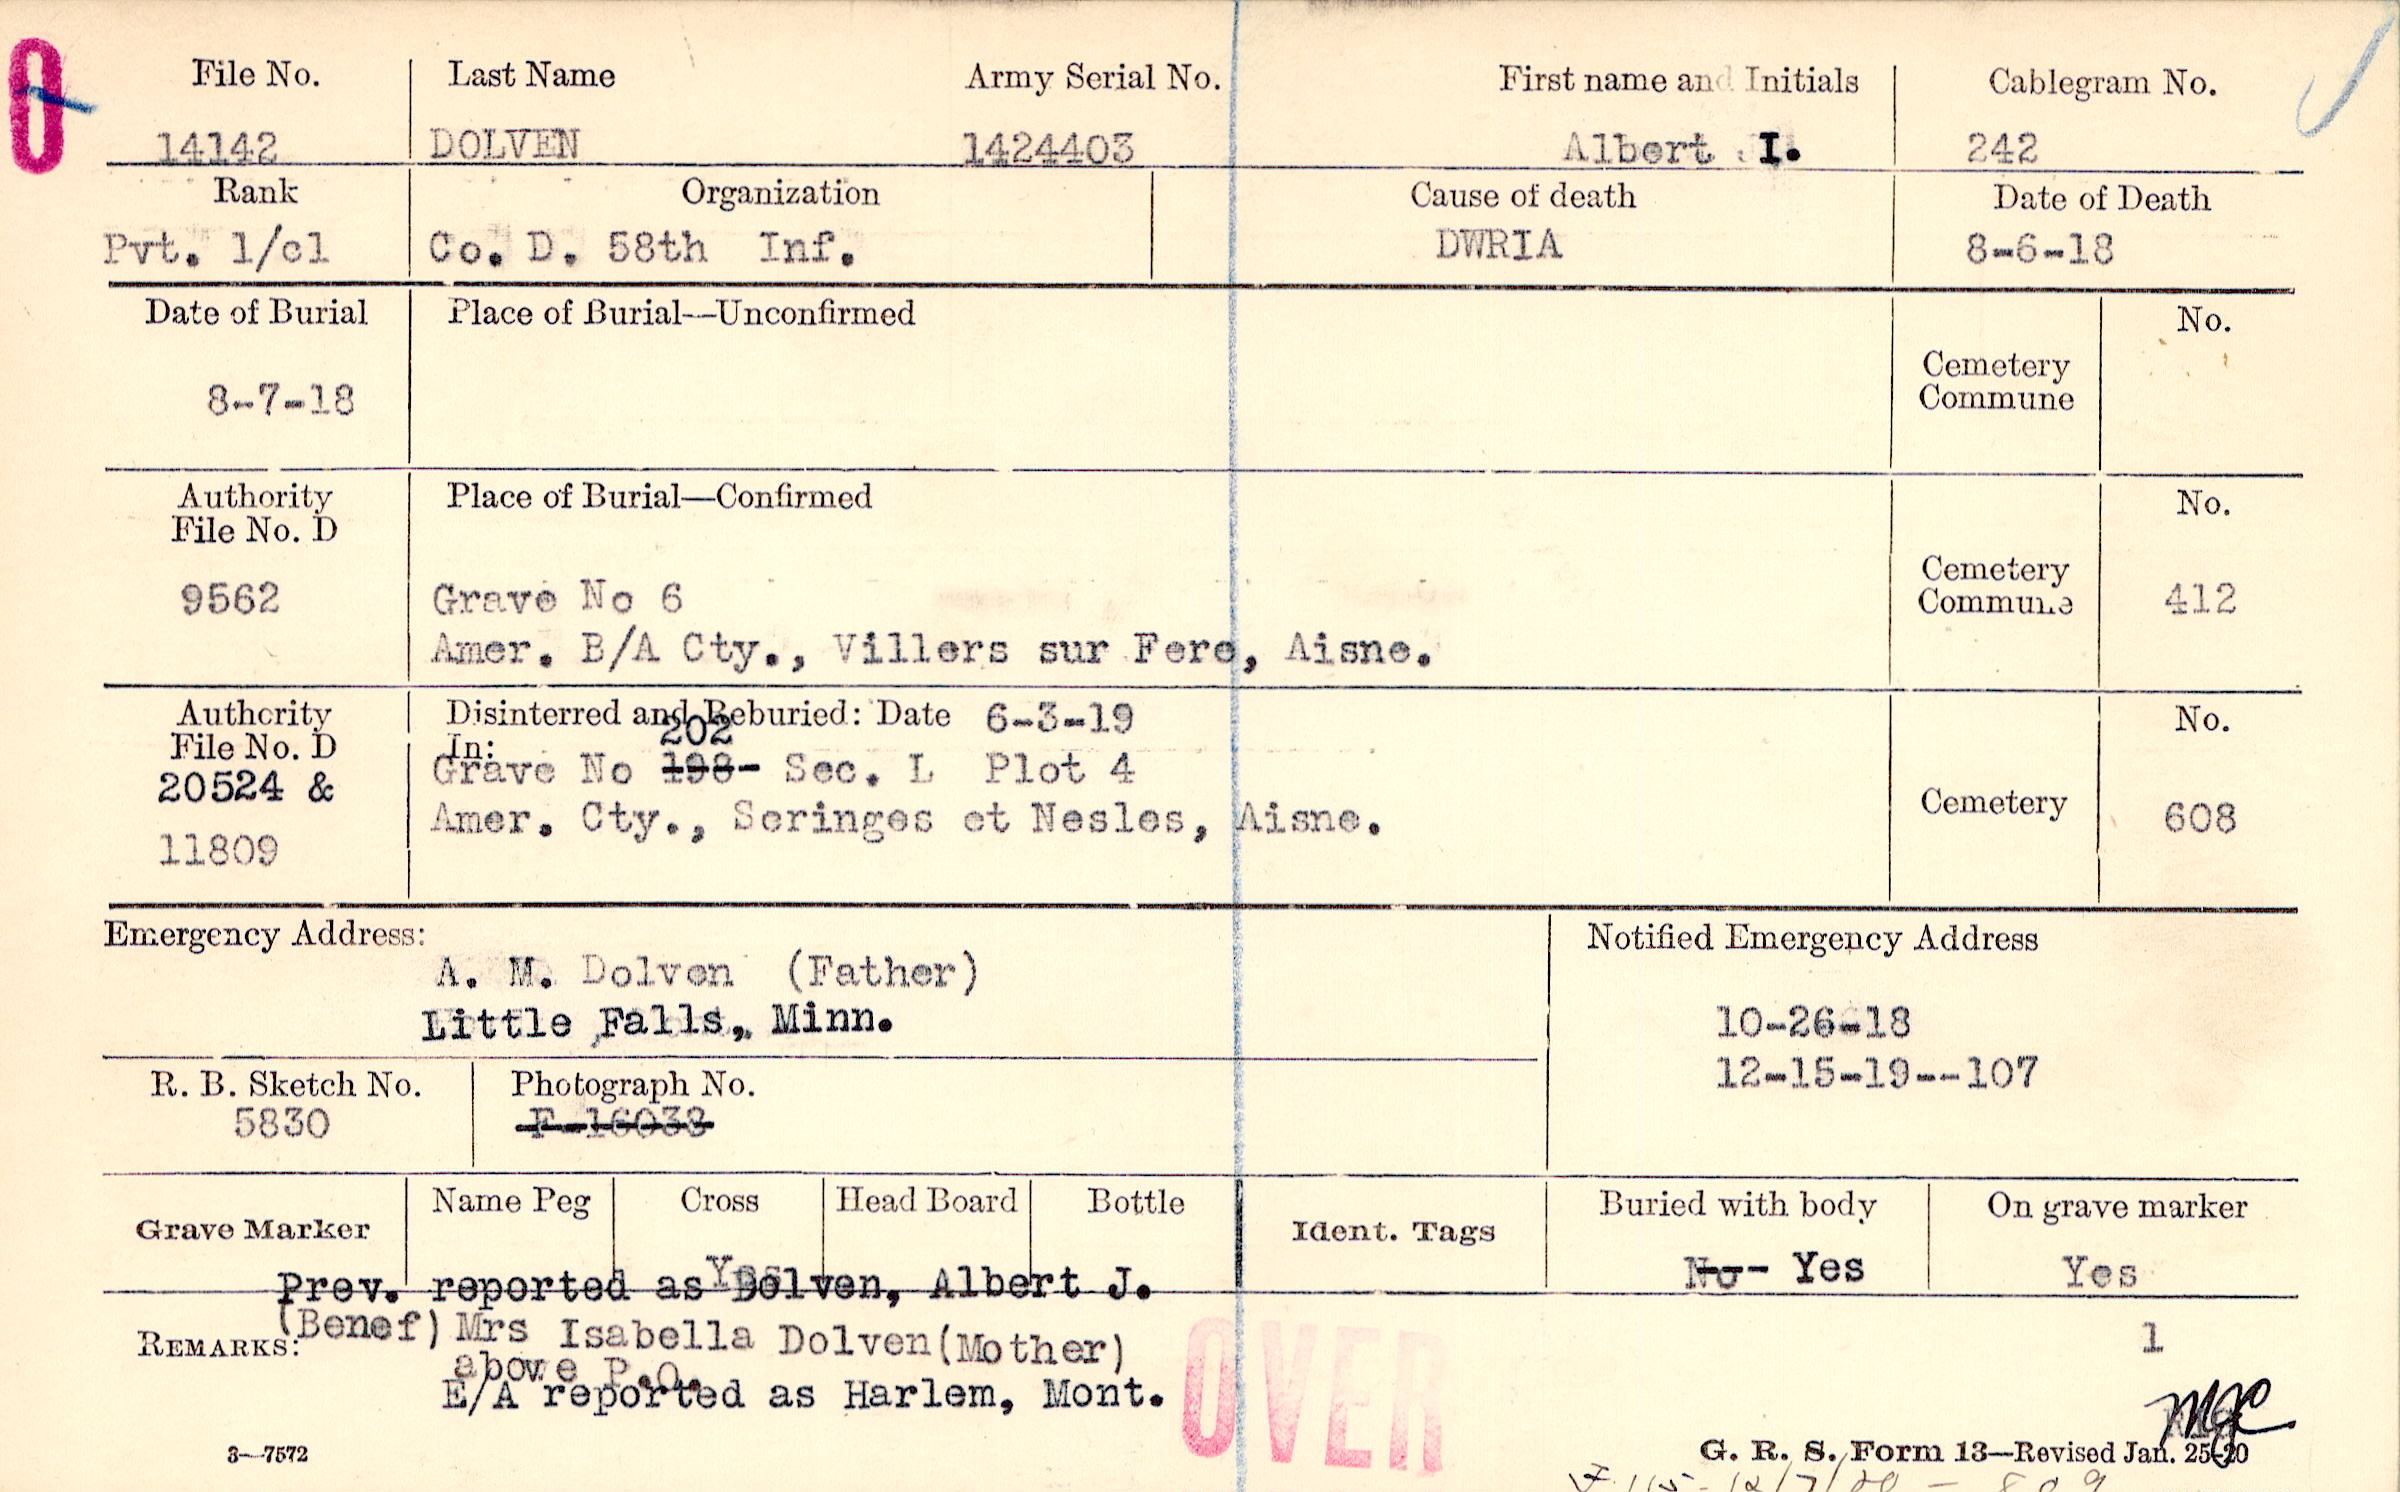 0
File No. Last Name Army Serial No. First name and Initials Cablegram No.
14142 DOLVEN 1424403 Albert I. 242
Rank Organization Cause of death Date of Death
Pvt. 1/cl Co. D. 58th Inf. DWRIA 8-6-18
Date of Burial Place of Burial—Unconfirmed No.
8-7-18 Cemetery
Commune
Authority Place of Burial—Confirmed No.
File No. D
9562 Grave No 6 Cemetery
Commune 412
Amer. B/A Cty., Villers sur Fere, Aisne.
Authority Disinterred and Reburied: Date 6-3-19 No.
File No. D In: 202
20524 & Grave No 198- Sec. L Plot 4
Amer. Cty., Seringes et Nesles, Aisne. Cemetery 608
11809
Emergency Address: Notified Emergency Address
A. M. Dolven (Father)
Little Falls, Minn. 10-26-18
12-15-19--107
R. B. Sketch No. Photograph No.
5830 F-16038
Grave Marker Name Peg Cross Head Board Bottle Ident. Tags Buried with body On grave marker
Yes No- Yes Yes
Prev. reported as Dolven, Albert J.
REMARKS: (Benef) Mrs Isabella Dolven (Mother) 1
above P.O.
E/A reported as Harlem, Mont.
OVER
MJC
3—7572 G. R. S. Form 13—Revised Jan. 25-20